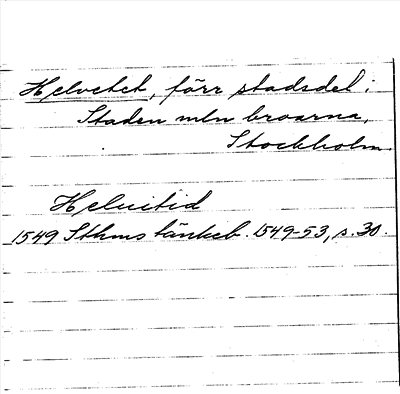 Helvetet, förr stadsdel i
Staden mln broarna,
Stockholm.
Heluitid
1549 Sthms tänkeb. 1549-53, s. 30.